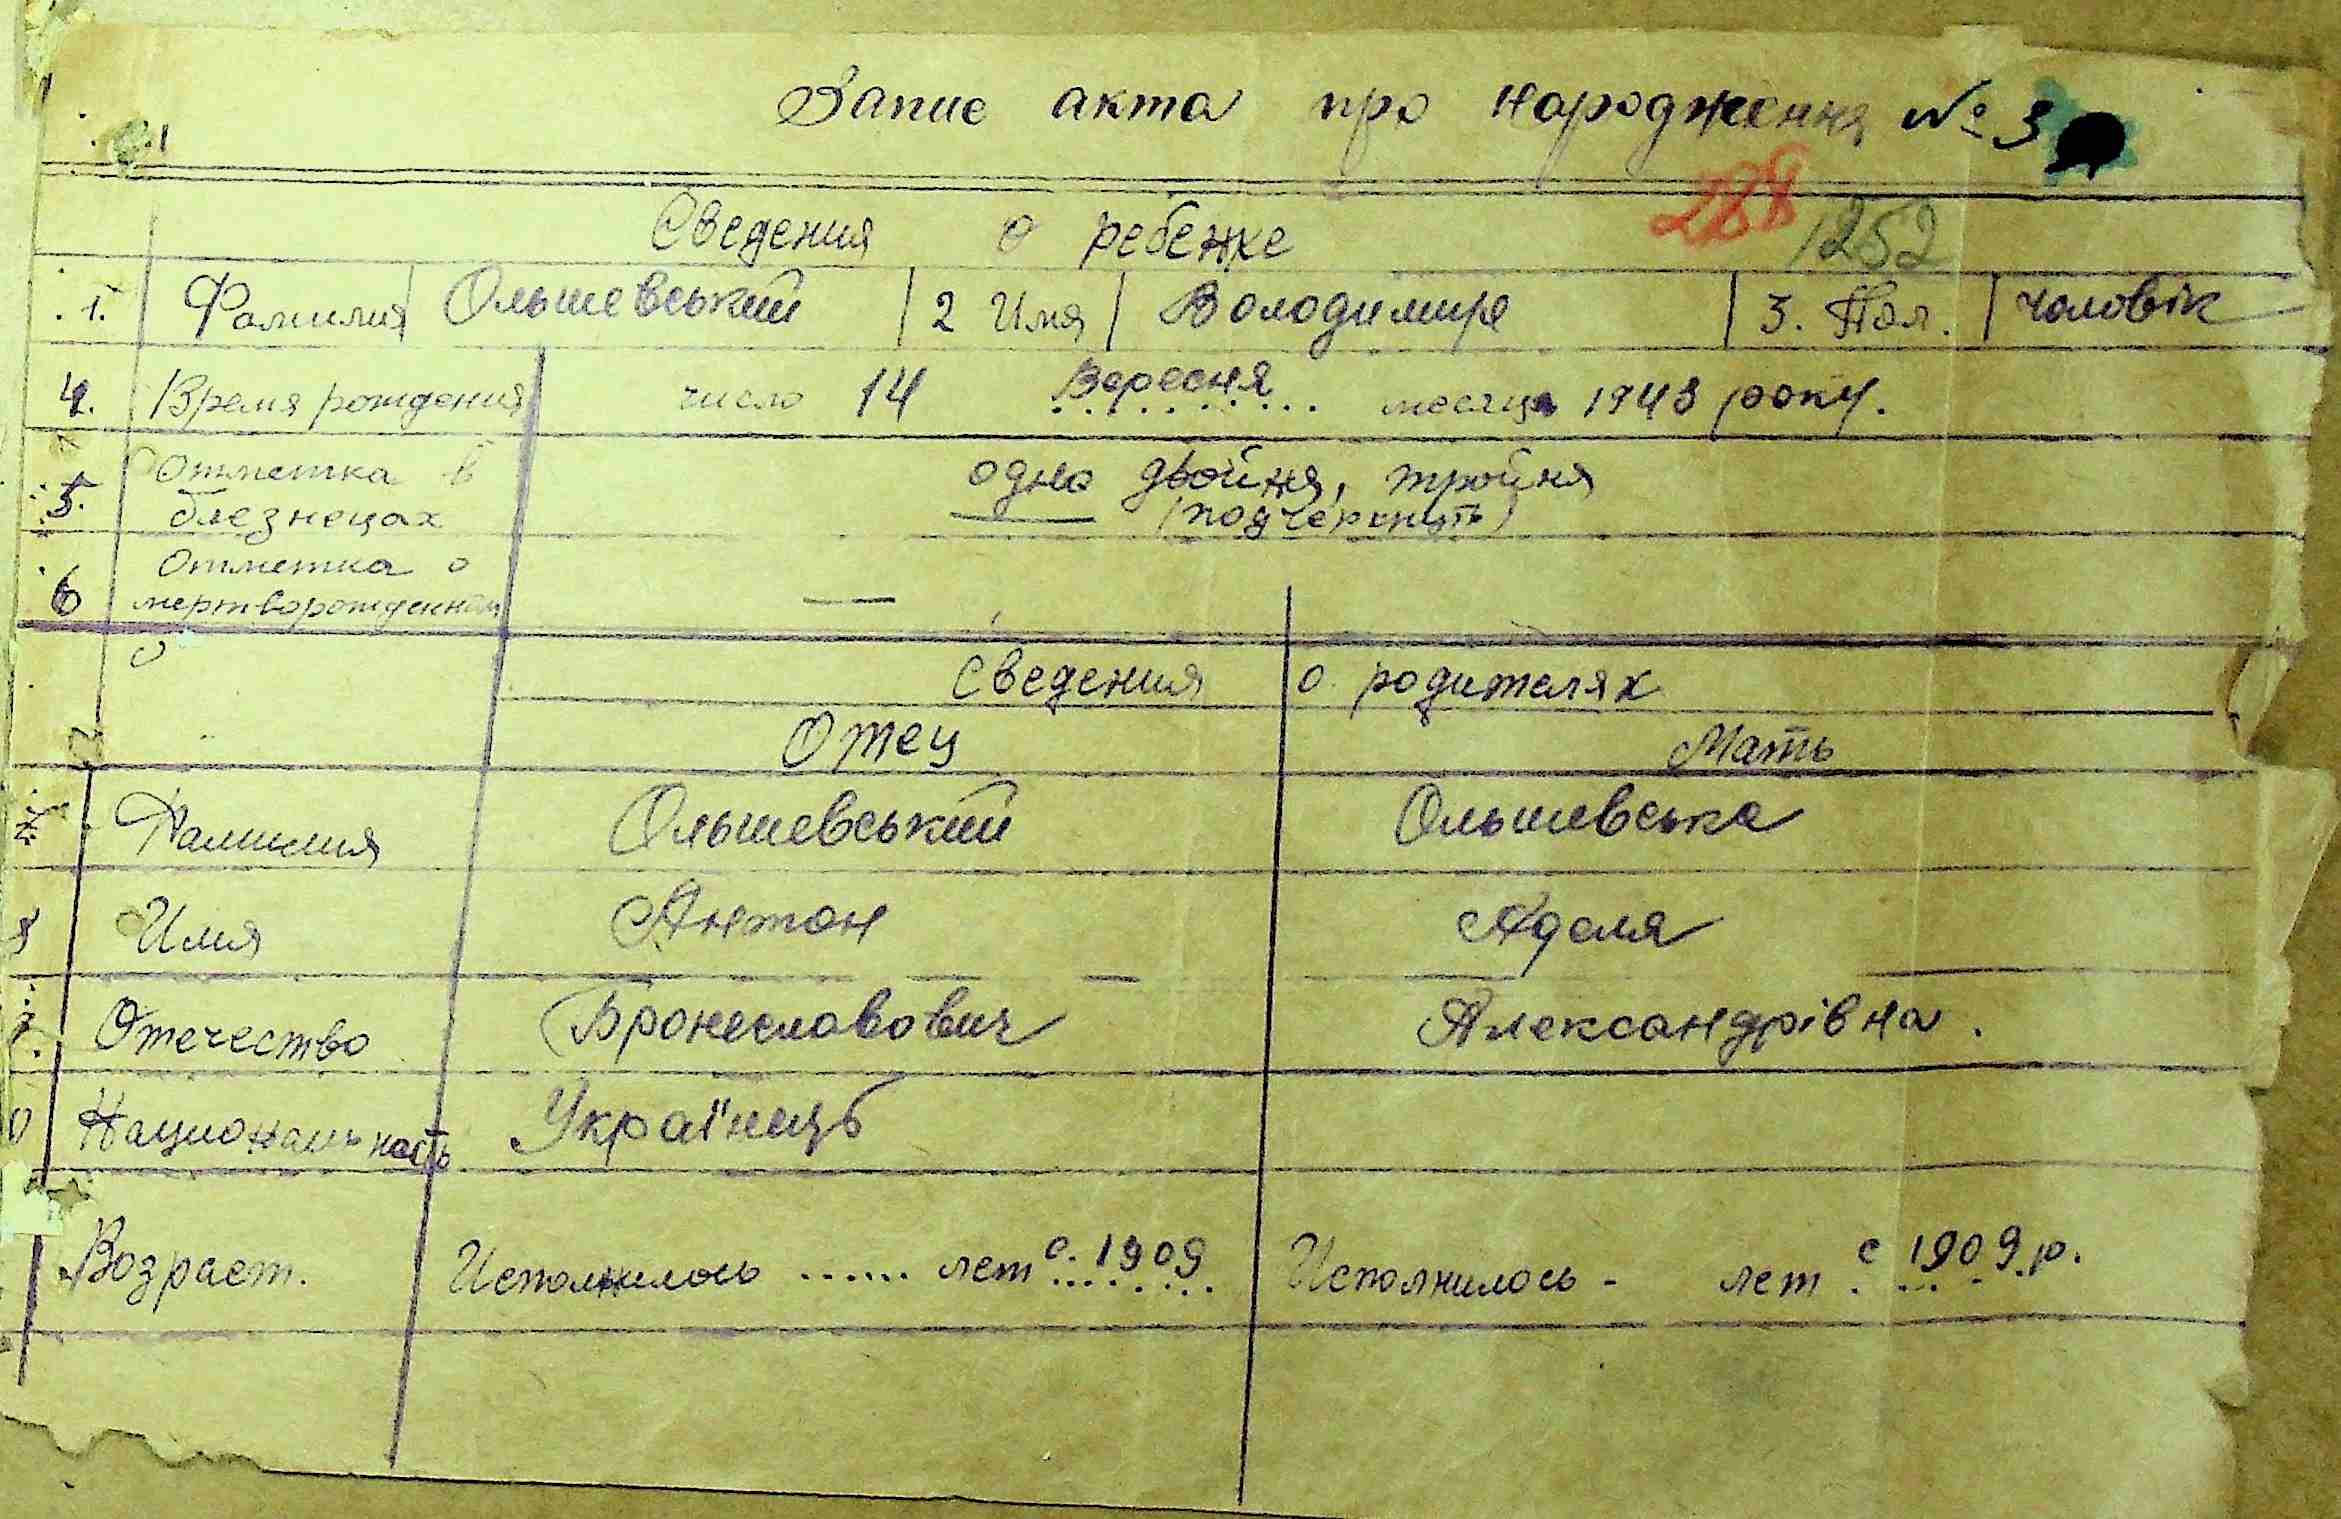 Запис акта про народження № 3
288 1252
Сведения о ребенке
1. Фамилия Ольшевський 2 Имя Володимир 3. Пол. чоловік
4. Время рождения число 14 Вересня месяца 1943 року.
Отметка в одно двойня, тройня
5. блезнецах (подчеркнуть)
Отметка о
6 мертворожденном —
Сведения о родителях
Отец Мать
7. Фамилия Ольшевський Ольшевська
8 Имя Антон Аделя
Отечество Бронеславович Александрівна.
Национальность Українець
Возраст. Исполнилось ...... лет с. 1909 Исполнилось - лет с 1909 р.